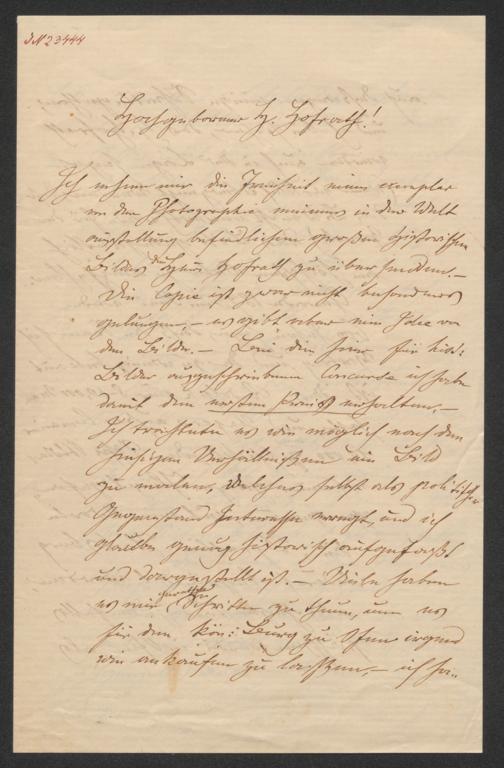 JN 23444
Hochgeborener H. Hofrath!
Ich nehme mir die Freiheit eines exemplar
von den Photographie meines in der Welt
ausstellung befindlichen großen historischen
Bildes Herrn Hofrath zu übersenden. –
Die Copie ist zwar nicht besonders
gelungen, – es gibt aber eine Idee von
den Bilde. – Bei den hier für hist:
Bilder ausgeschriebenen Concurse ich habe
damit den ersten Preis erhalten. –
Ich trachtete es wie möglich nach den
hiesigen Verhältnißen ein Bild
zu malen, welches selbst als politischer
Gegenstand Interesse erregt, und ich
glaube genug historisch aufgefaßt
und dargestellt ist. – Viele haben
es mir Schritte zu thuen, um es
für den kön: Burg zu Ofen irgend
wie ankaufen zu laßen, – ich ha..